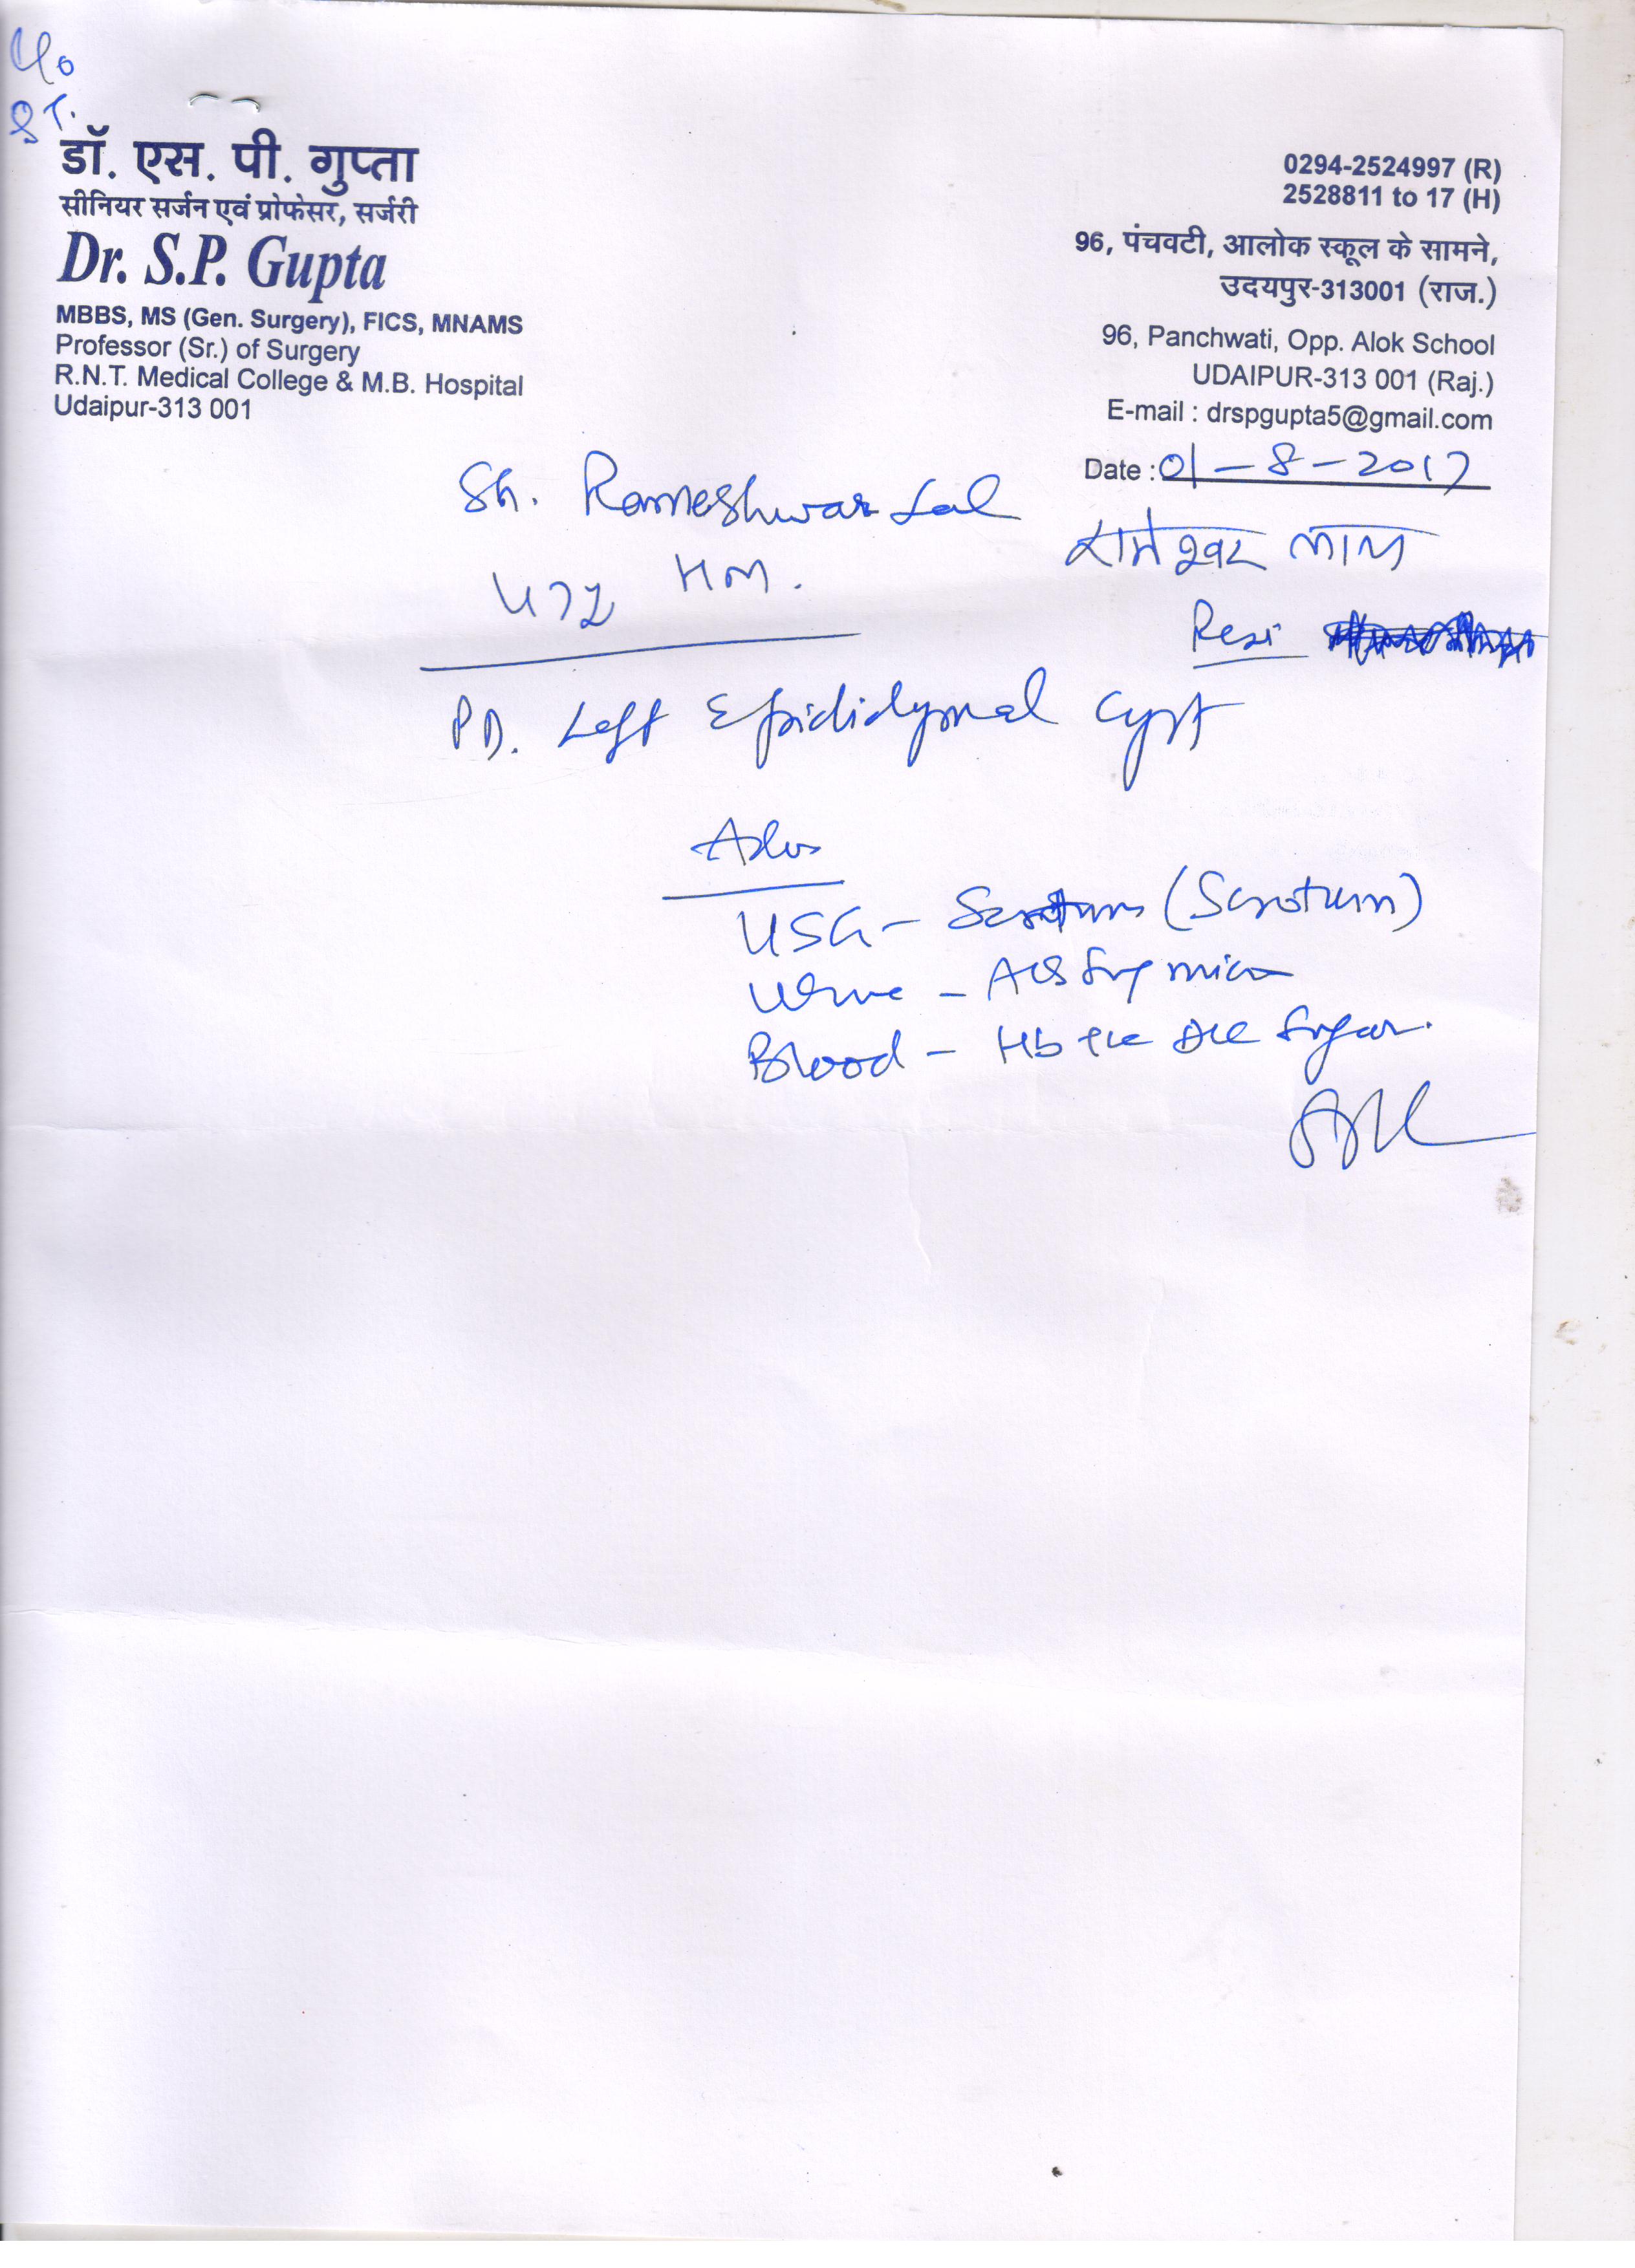 डॉ. एस. पी. गुप्ता
सीनियर सर्जन एवं प्रोफेसर, सर्जरी
Dr. S.P. Gupta
MBBS, MS (Gen. Surgery), FICS, MNAMS
Professor (Sr.) of Surgery
R.N.T. Medical College & M.B. Hospital
Udaipur-313 001
0294-2524997 (R)
2528811 to 17 (H)
96, पंचवटी, आलोक स्कूल के सामने,
उदयपुर-313001 (राज.)
96, Panchwati, Opp. Alok School
UDAIPUR-313 001 (Raj.)
E-mail : drspgupta5@gmail.com
Date : 01-8-2017
Sh. Rameshwar Lal
रामेश्वर लाल
Resi
PD. Left Epididymal Cyst
Adv
USG - Scrotum (Scrotum)
Urine - Alb Sug micro
Blood - Hb TLC DLC Sugar.